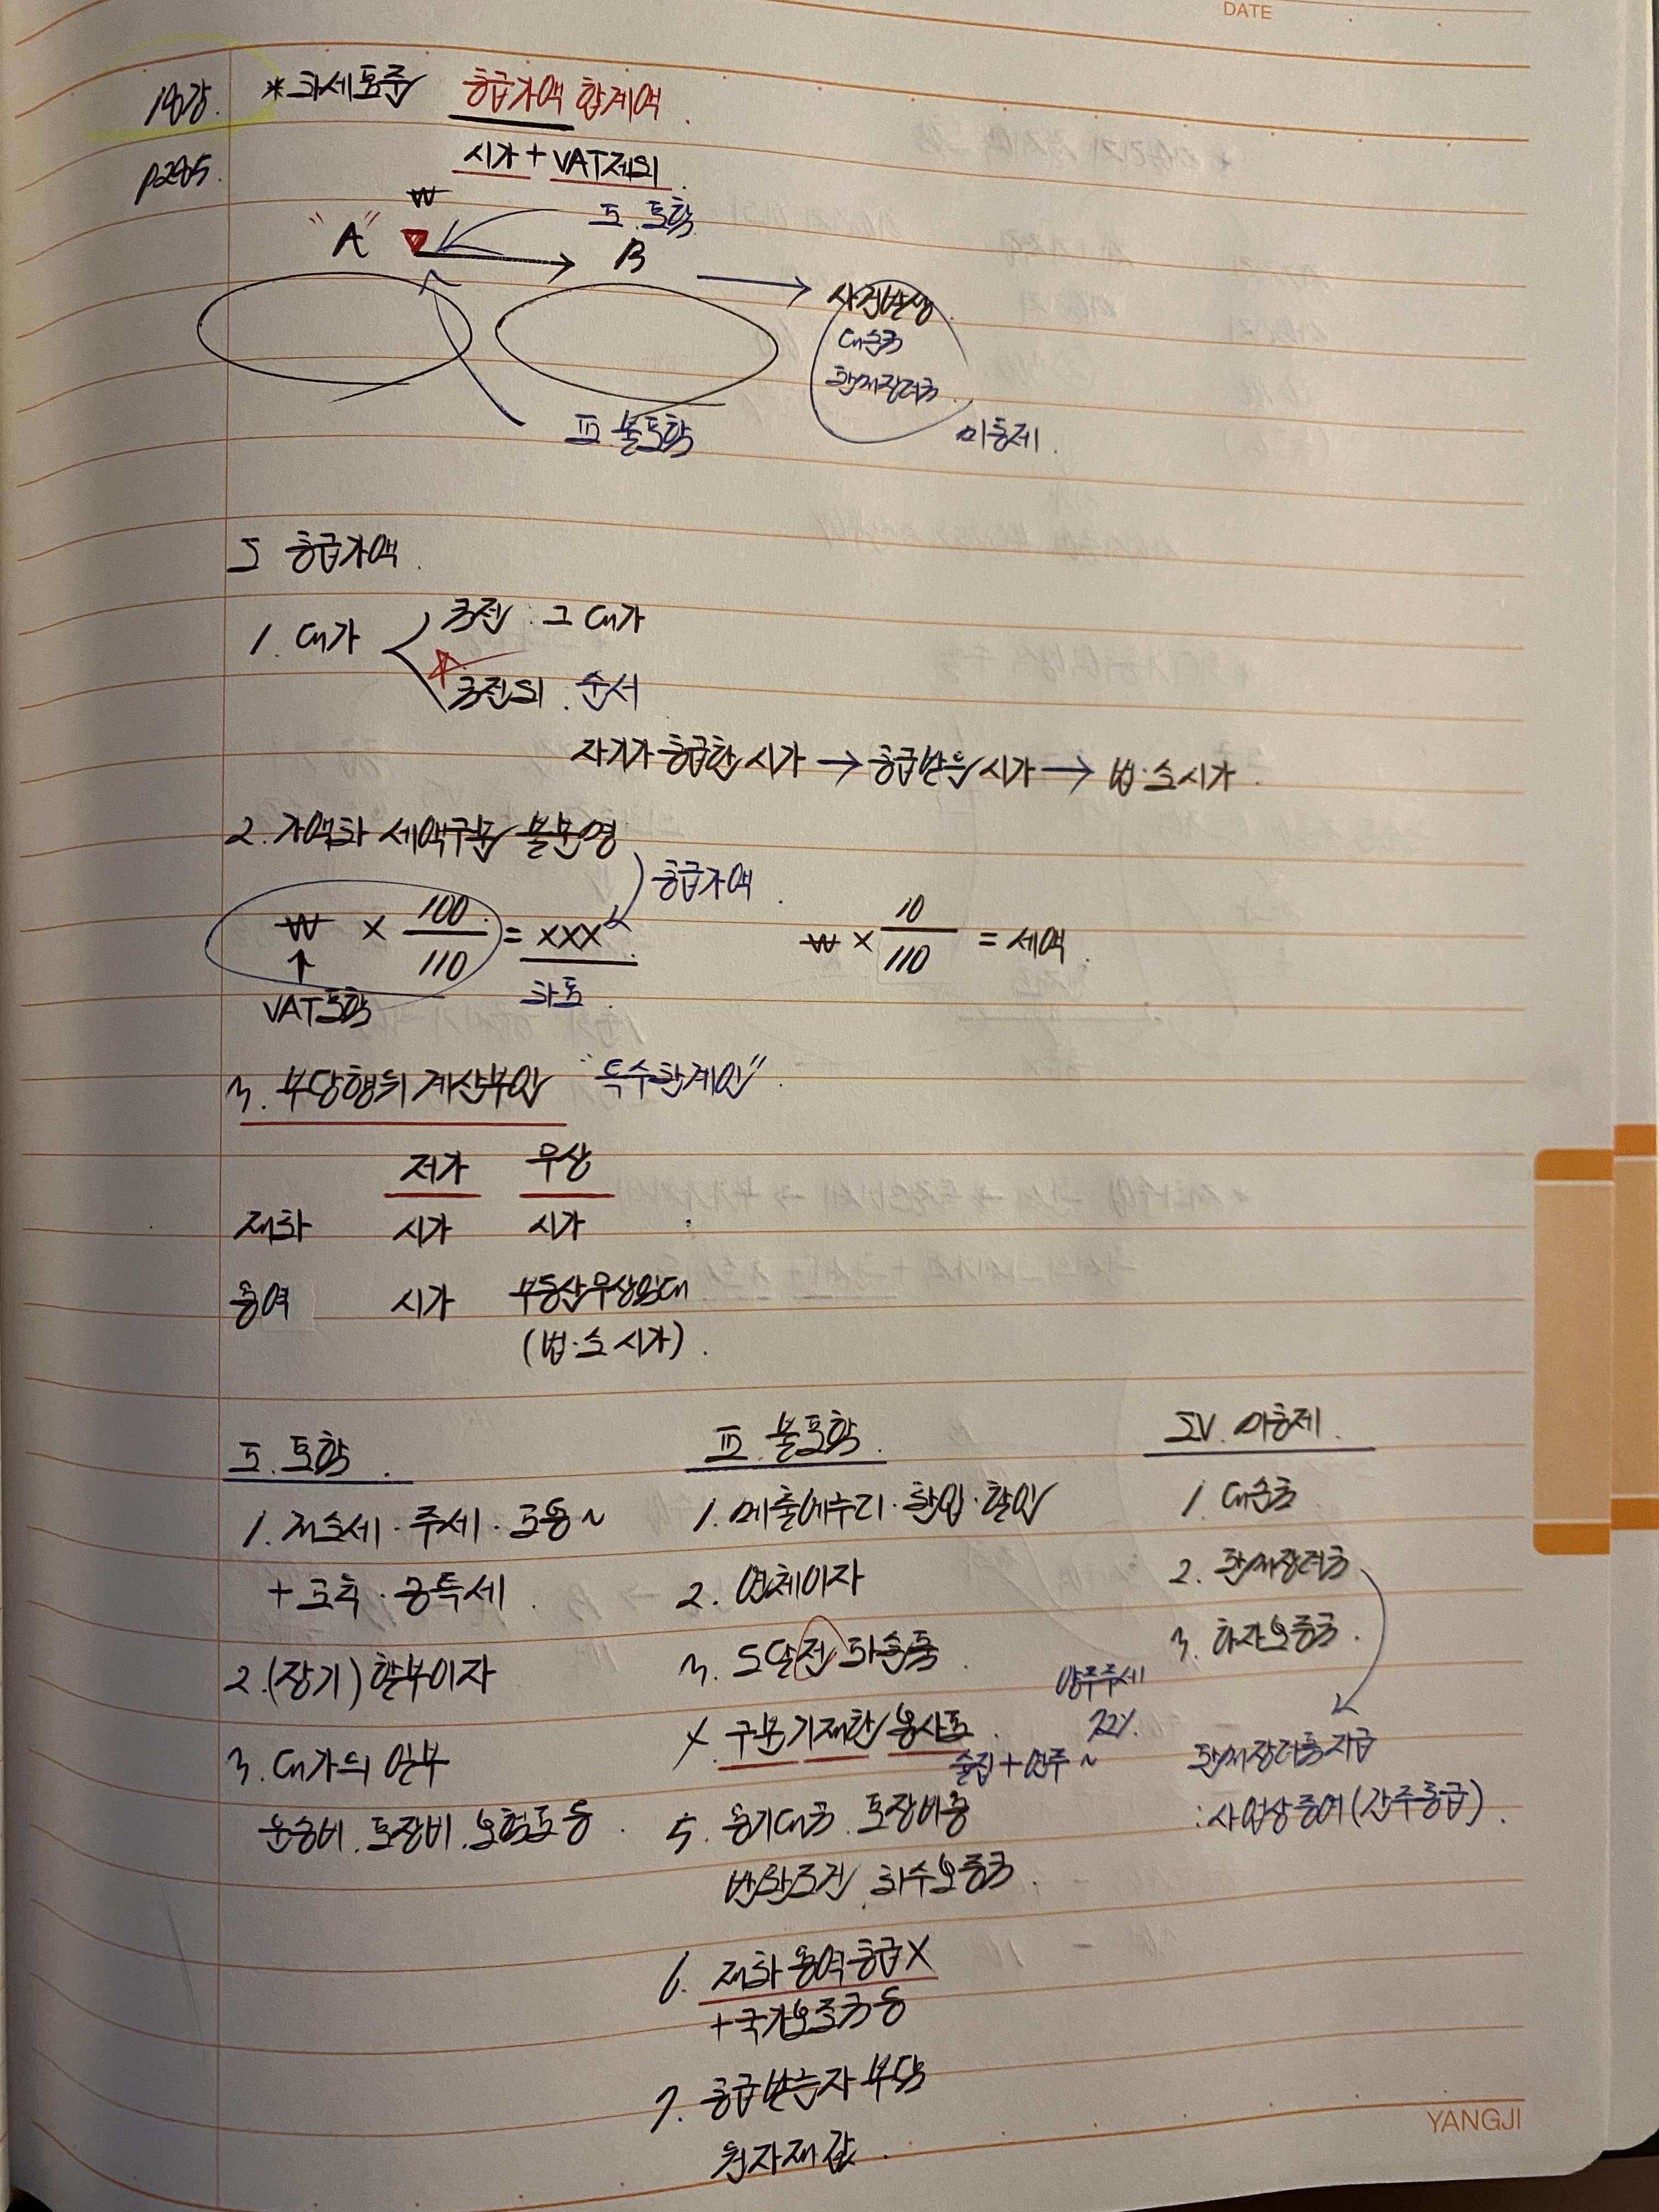 DATE
* 과세표준 공급가액 합계액.
p285.
시가 + VAT제외.
₩
Ⅱ. 포함
"A" B
사건발생.
대손금
판매장려금.
Ⅲ 불포함
미공제.
Ⅰ 공급가액.
1. 대가
금전 : 그 대가
금전외. 순서
자기가 공급한 시가 → 공급받은 시가 → 법·소 시가.
2. 가액과 세액구분 불분명
공급가액.
₩ × 100/110 = XXX
₩ × 10/110 = 세액.
↑
VAT포함
과표.
3. 부당행위계산부인 "특수관계인".
저가 무상
재화 시가 시가
용역 시가 부동산무상임대
(법·소 시가).
Ⅱ. 포함.
1. 개소세·주세·교통~
+ 교육·농특세.
2. (장기) 할부이자
3. 대가의 일부
운송비. 포장비. 보험료 등.
Ⅲ. 불포함.
1. 매출에누리·환입·할인
2. 연체이자
3. 도달전 파손등.
4. 구분기재한 봉사료.
양주주세
72%.
술집+연주~
5. 용기대금. 포장비용
반환조건. 하수보증금.
6. 재화 용역공급X
+국가보조금 등
7. 공급받는자 부담
원자재값.
Ⅳ. 미공제.
1. 대손금.
2. 판매장려금
3. 하자보증금.
판매장려물품지급
: 사업상증여(간주공급).
YANGJI